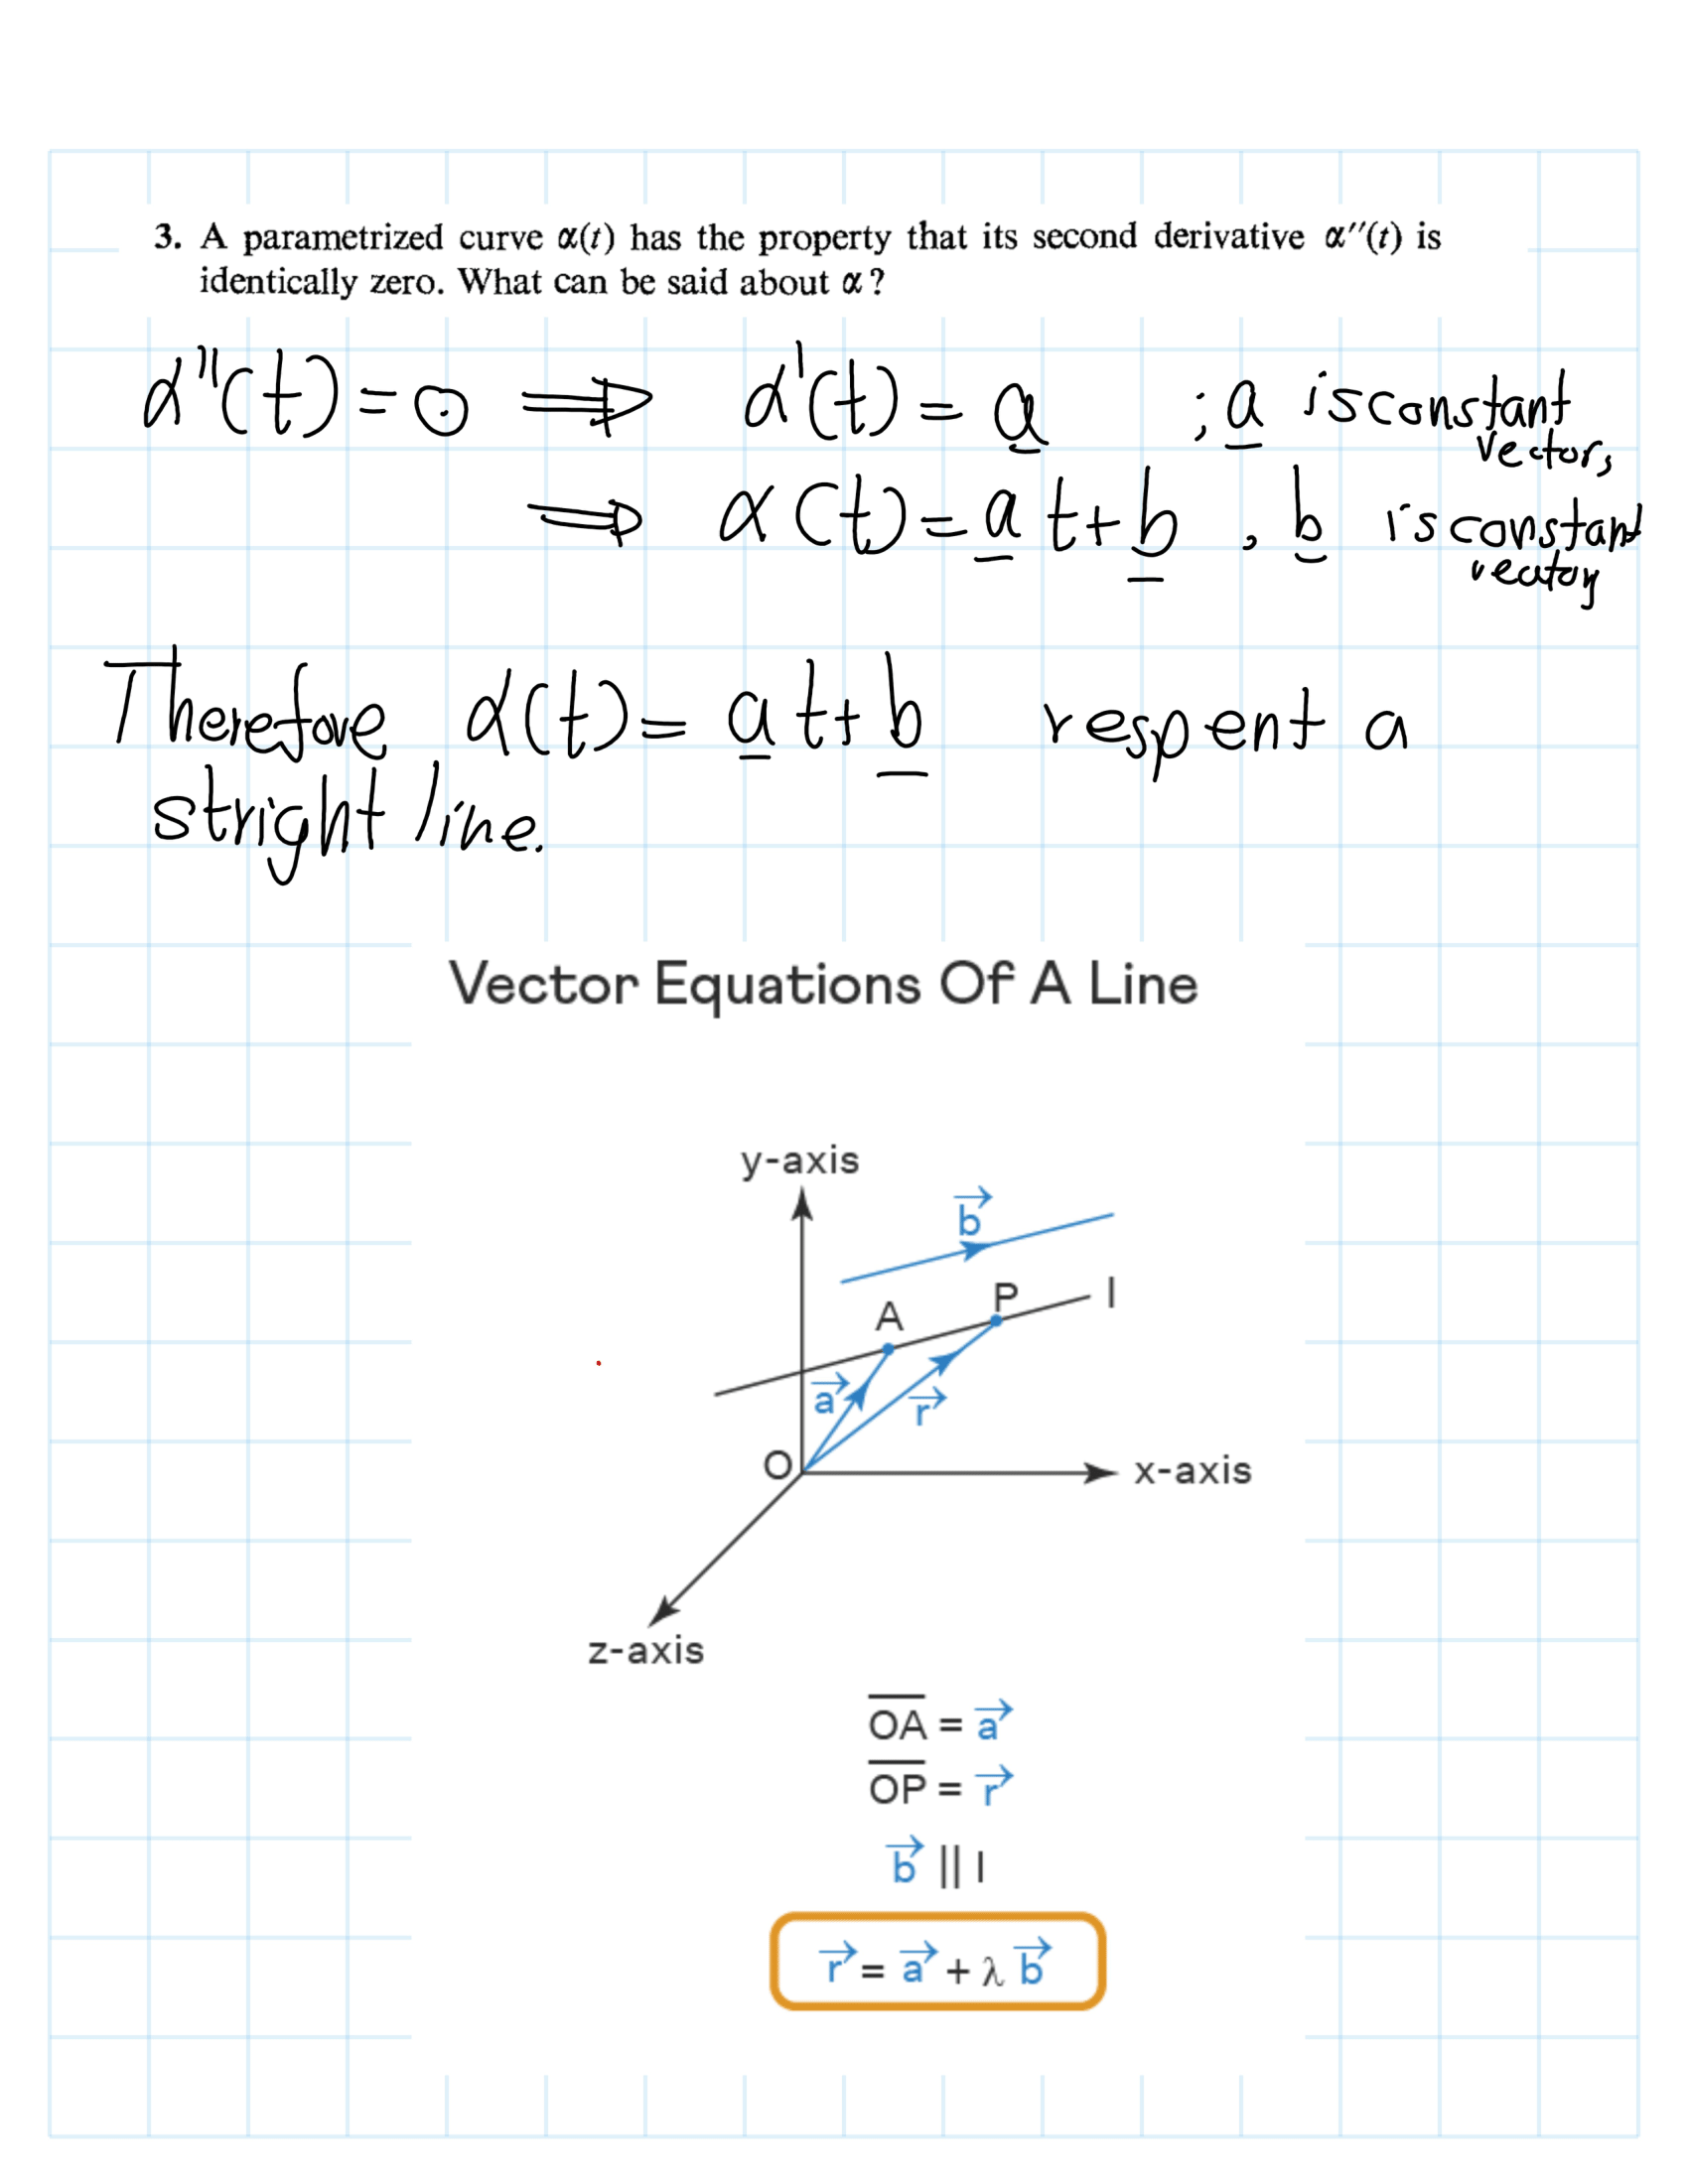 3. A parametrized curve α(t) has the property that its second derivative α″(t) is
identically zero. What can be said about α?
α''(t)=0 ⟹ α'(t)= a ; a is constant
vector,
⟹ α(t)= a t+ b , b is constant
vector
Therefore α(t)= a t+ b respent a
stright line.
Vector Equations Of A Line
y-axis
b→
P l
A
a→ r→
O x-axis
z-axis
OA = a→
OP = r→
b→ || l
r→ = a→ + λ b→